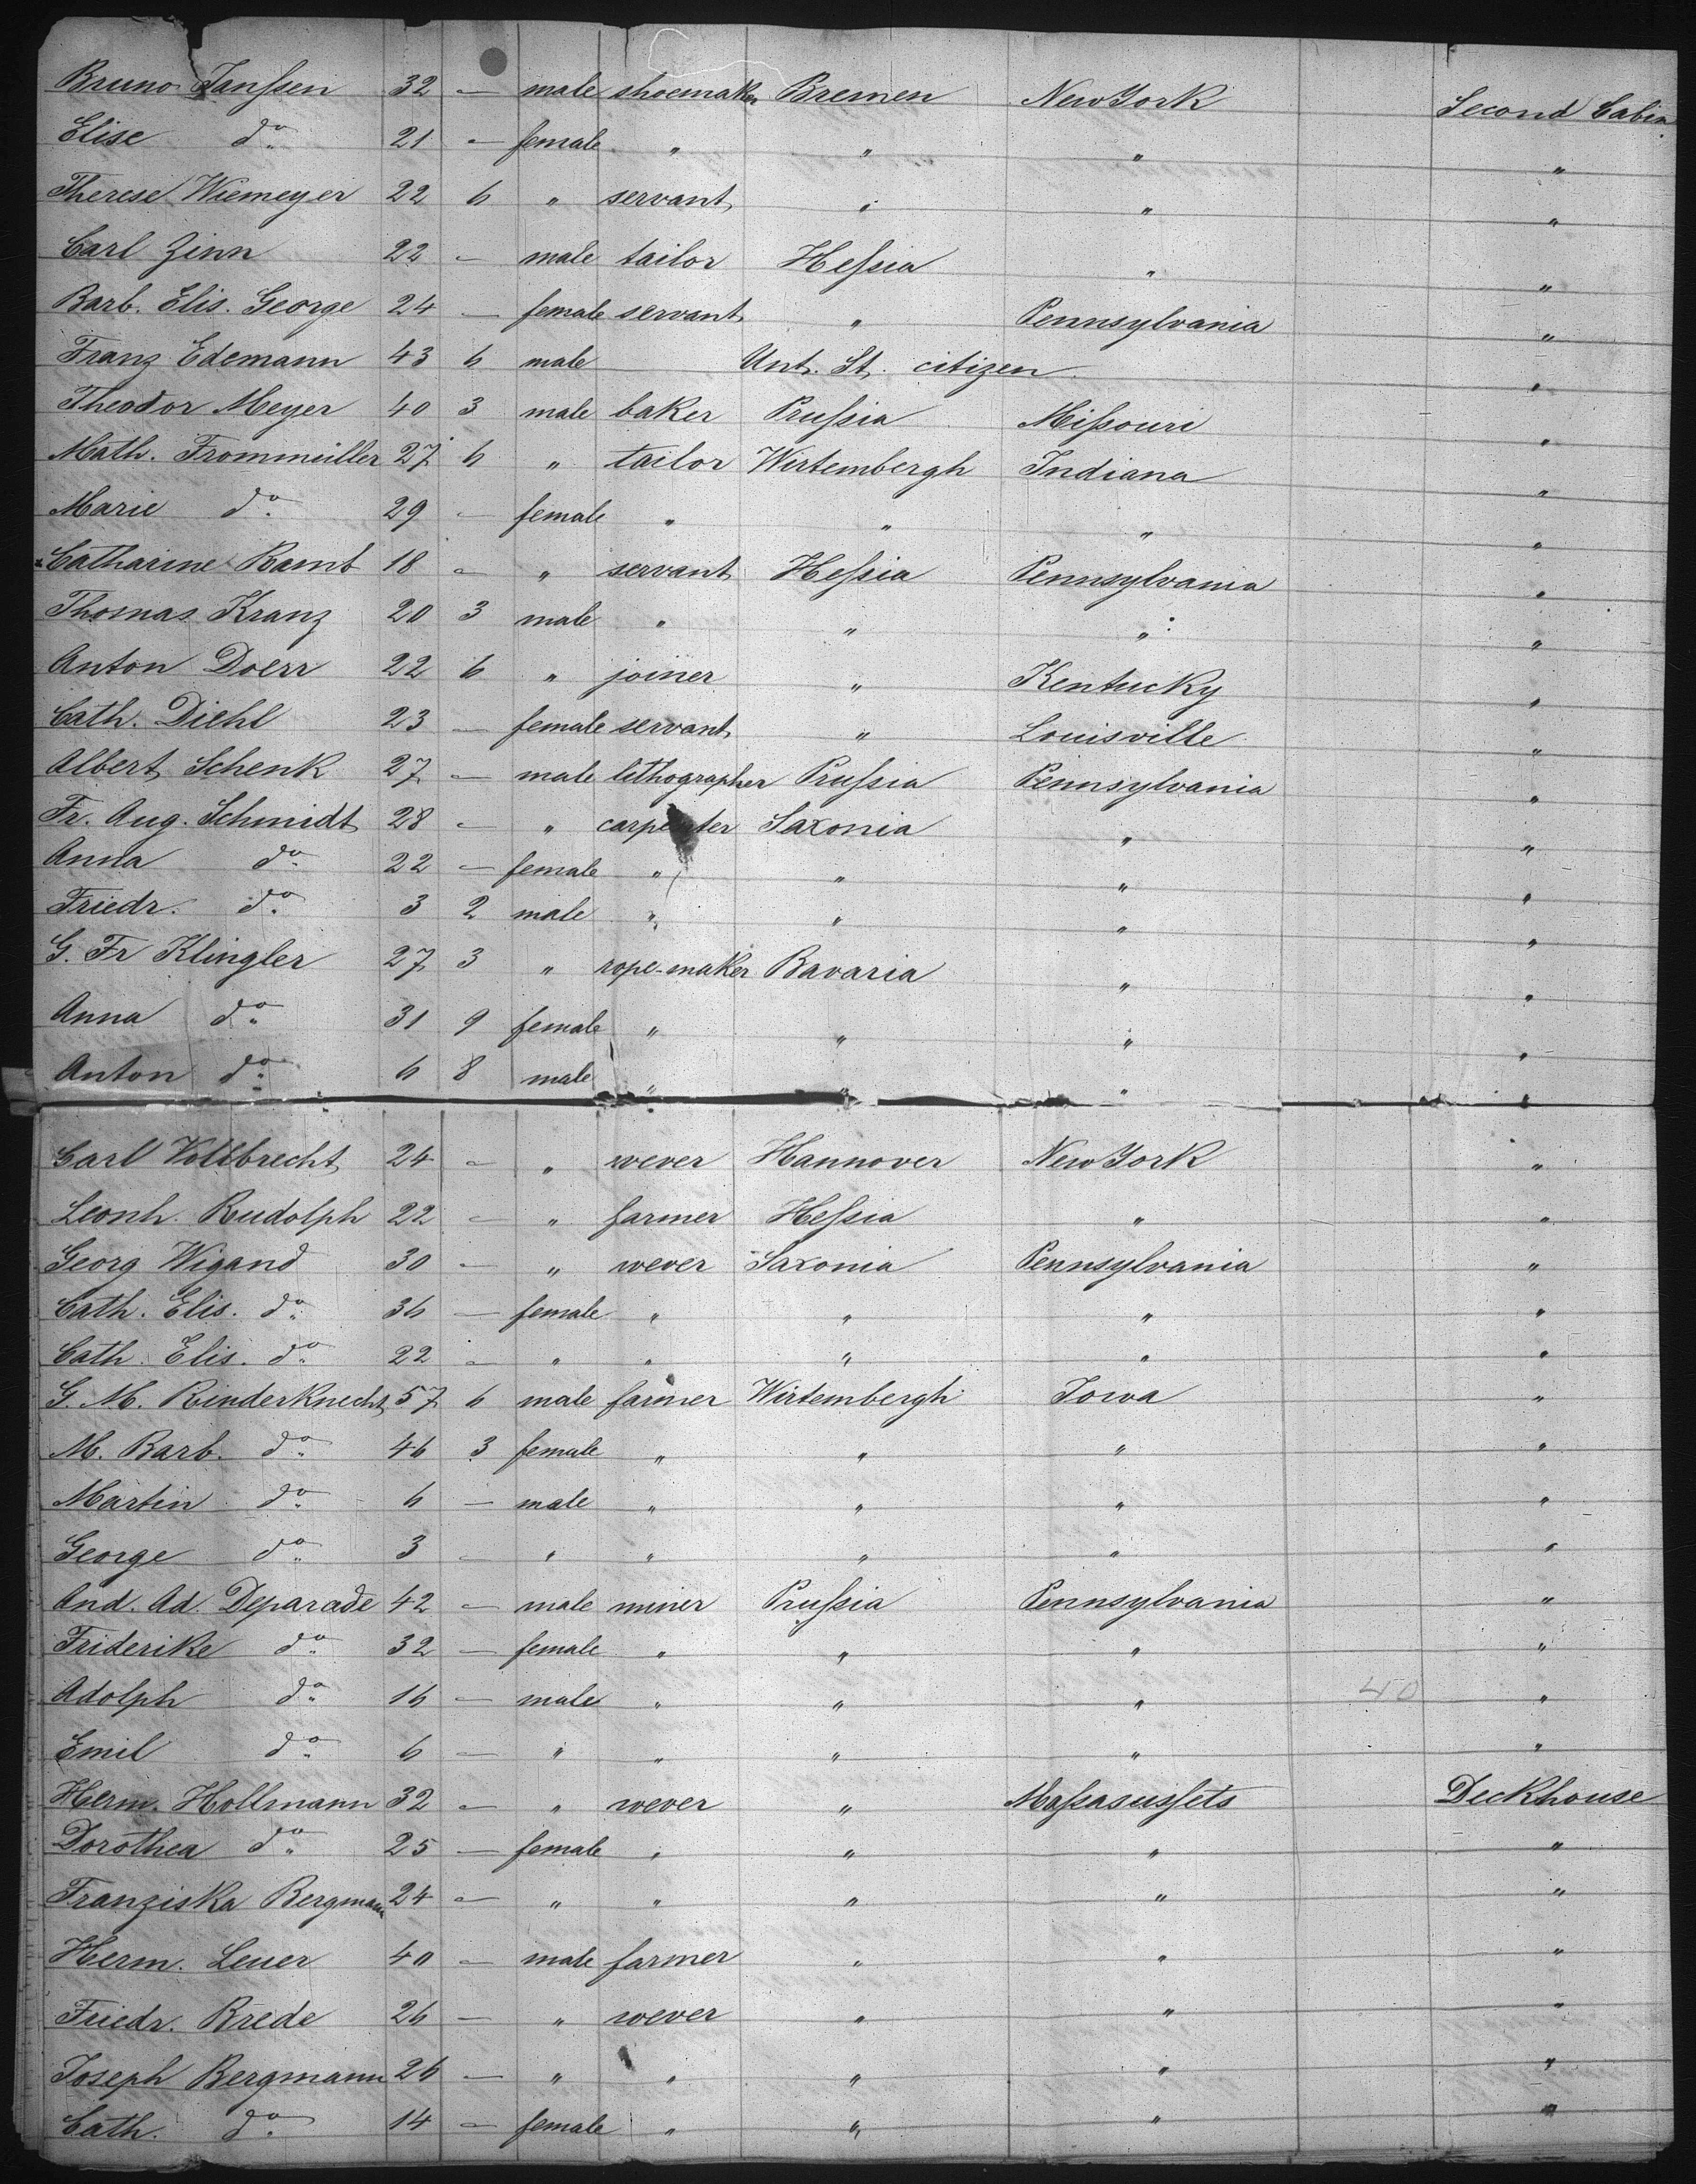 Bruno Janſsen 32 — male shoemaker Bremen New York Second Cabin
Elise do 21 — female " " " "
Therese Wiemeyer 22 6 " servant " " "
Carl Zinn 22 — male tailor Heſsia " "
Barb. Elis. George 24 — female servant " Pennsylvania "
Franz Edemann 43 6 male — Unt. St. citizen "
Theodor Meyer 40 3 male baker Pruſsia Miſsouri "
Math. Frommüller 27 6 " tailor Wirtembergh Indiana "
Marie do 29 — female " " " "
Catharine Ramb 18 — " servant Heſsia Pennsylvania "
Thomas Kranz 20 3 male " " " "
Anton Doerr 22 6 " joiner " Kentucky "
Cath. Diehl 23 — female servant " Louisville "
Albert Schenk 27 — male lithographer Pruſsia Pennsylvania "
Fr. Aug. Schmidt 28 — " carpenter Saxonia " "
Anna do 22 — female " " " "
Friedr. do 3 2 male " " " "
G. Fr Klingler 27 3 " rope-maker Bavaria " "
Anna do 31 9 female " " " "
Anton do 6 8 male " " " "
Carl Vollbrecht 24 — " wever Hannover New York "
Leonh. Rudolph 22 — " farmer Heſsia " "
Georg Wigand 30 — " wever Saxonia Pennsylvania "
Cath. Elis. do 36 — female " " " "
Cath. Elis. do 22 — " " " " "
G. M. Rinderknecht 57 6 male farmer Wirtembergh Iowa "
M. Barb. do 46 3 female " " " "
Martin do 6 — male " " " "
George do 3 — " " " " "
And. Ad. Deparade 42 — male miner Pruſsia Pennsylvania "
Friderike do 32 — female " " " "
Adolph do 16 — male " " " 40 "
Emil do 6 — " " " " "
Herm. Hollmann 32 — " wever " Maſsasuſsets Deckhouse
Dorothea do 25 — female " " " "
Franziska Bergmann 24 — " " " " "
Herm. Leuer 40 — male farmer " " "
Friedr. Brede 26 — " wever " " "
Joseph Bergmann 26 — " " " " "
Cath. do 14 — female " " " "